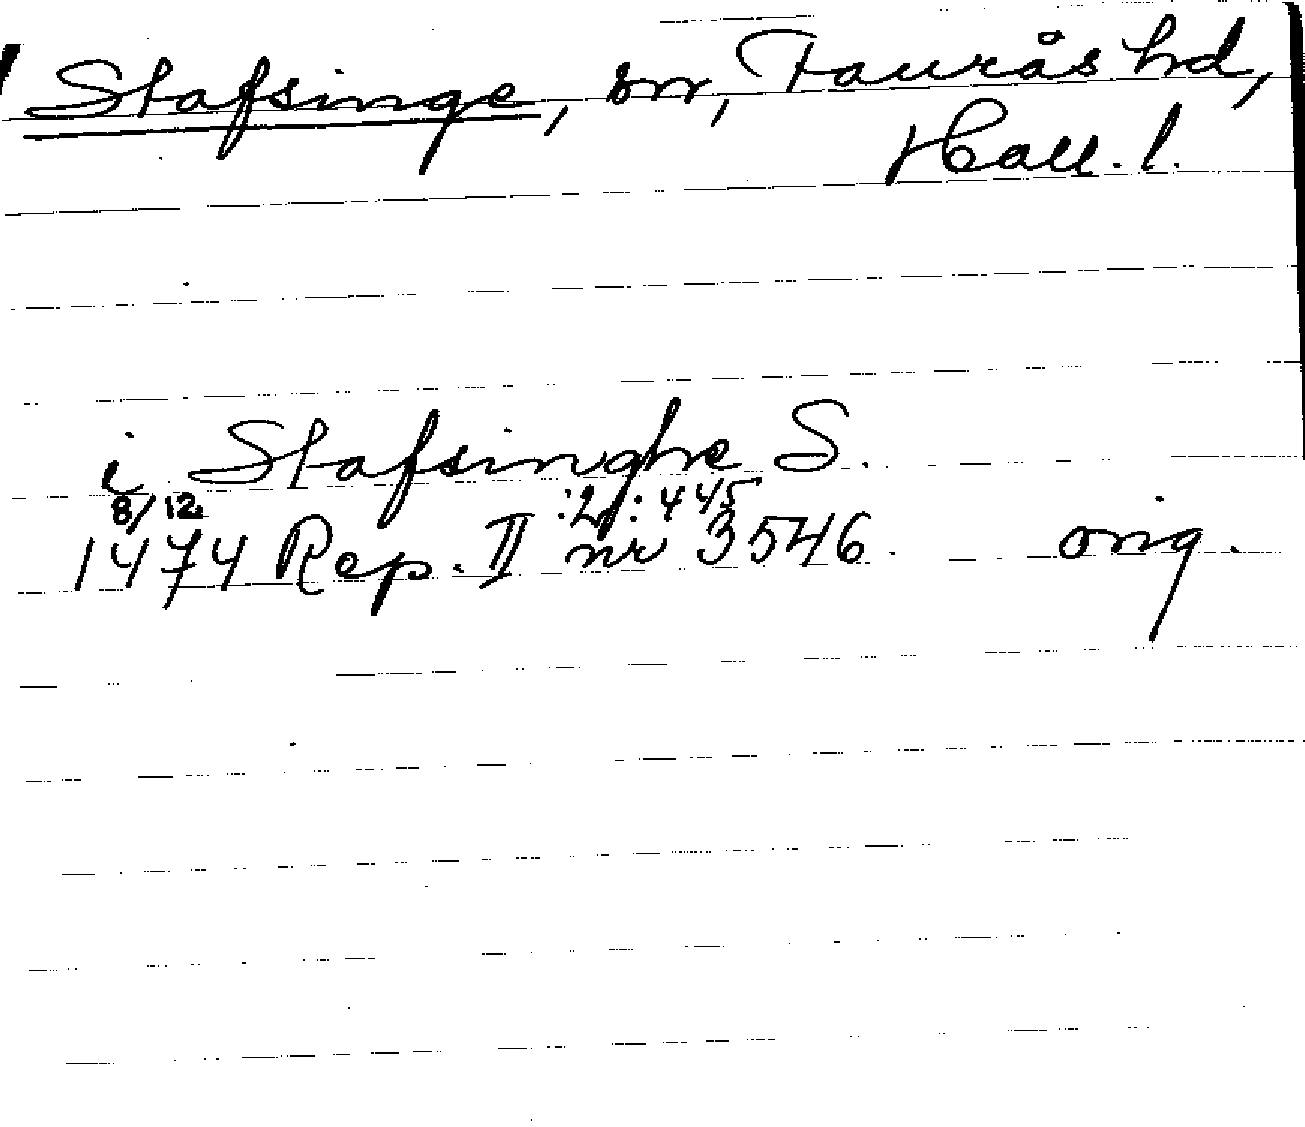 Stafsinge, sn, Faurås hd,
Hall. l.
i Stafsinghe S.
8/12 :2: 445
1474 Rep. II nr 3546. orig.